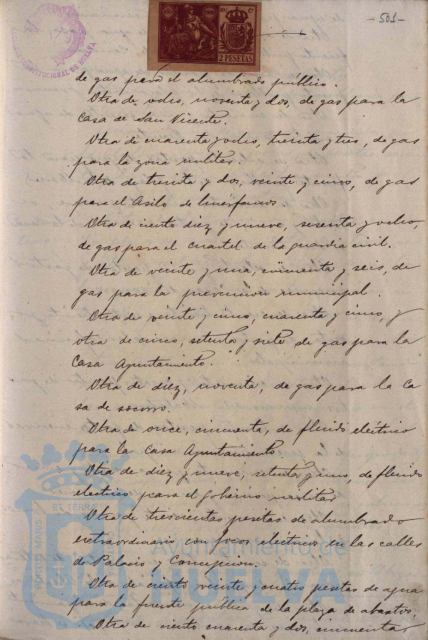 - 501 -
2 PESETAS
de gas para el alumbrado publico.
Otra de ocho, noventa y dos, de gas para la
casa de San Vicente.
Otra de cuarenta y ocho, treinta y tres, de gas
para la zona militar.
Otra de treinta y dos, veinte y cinco, de gas
para el Asilo de huérfanos
Otra de ciento diez y nueve, sesenta y ocho,
de gas para el cuartel de la guardia civil.
Otra de veinte y una, cincuenta y seis, de
gas para la prevencion municipal.
Otra de veinte y cinco, cuarenta y cinco, y
otra de cinco, setenta y siete de gas para la
Casa Ayuntamiento.
Otra de diez, noventa, de gas para la ca
sa de socorro.
Otra de once, cincuenta, de fluido eléctrico
para la Casa Ayuntamiento.
Otra de diez y nueve, setenta y uno, de fluido
electrico para el gobierno militar
Otra de trescientas pesetas de alumbrado
extraordinario con focos electricos en las calles
de Palacio y Concepcion.
Otra de ciento veinte y cuatro pesetas de agua
para la fuente publica de la plaza de abastos.
Otra de ciento cuarenta y dos, cincuenta
Ayuntamiento de
HUELVA